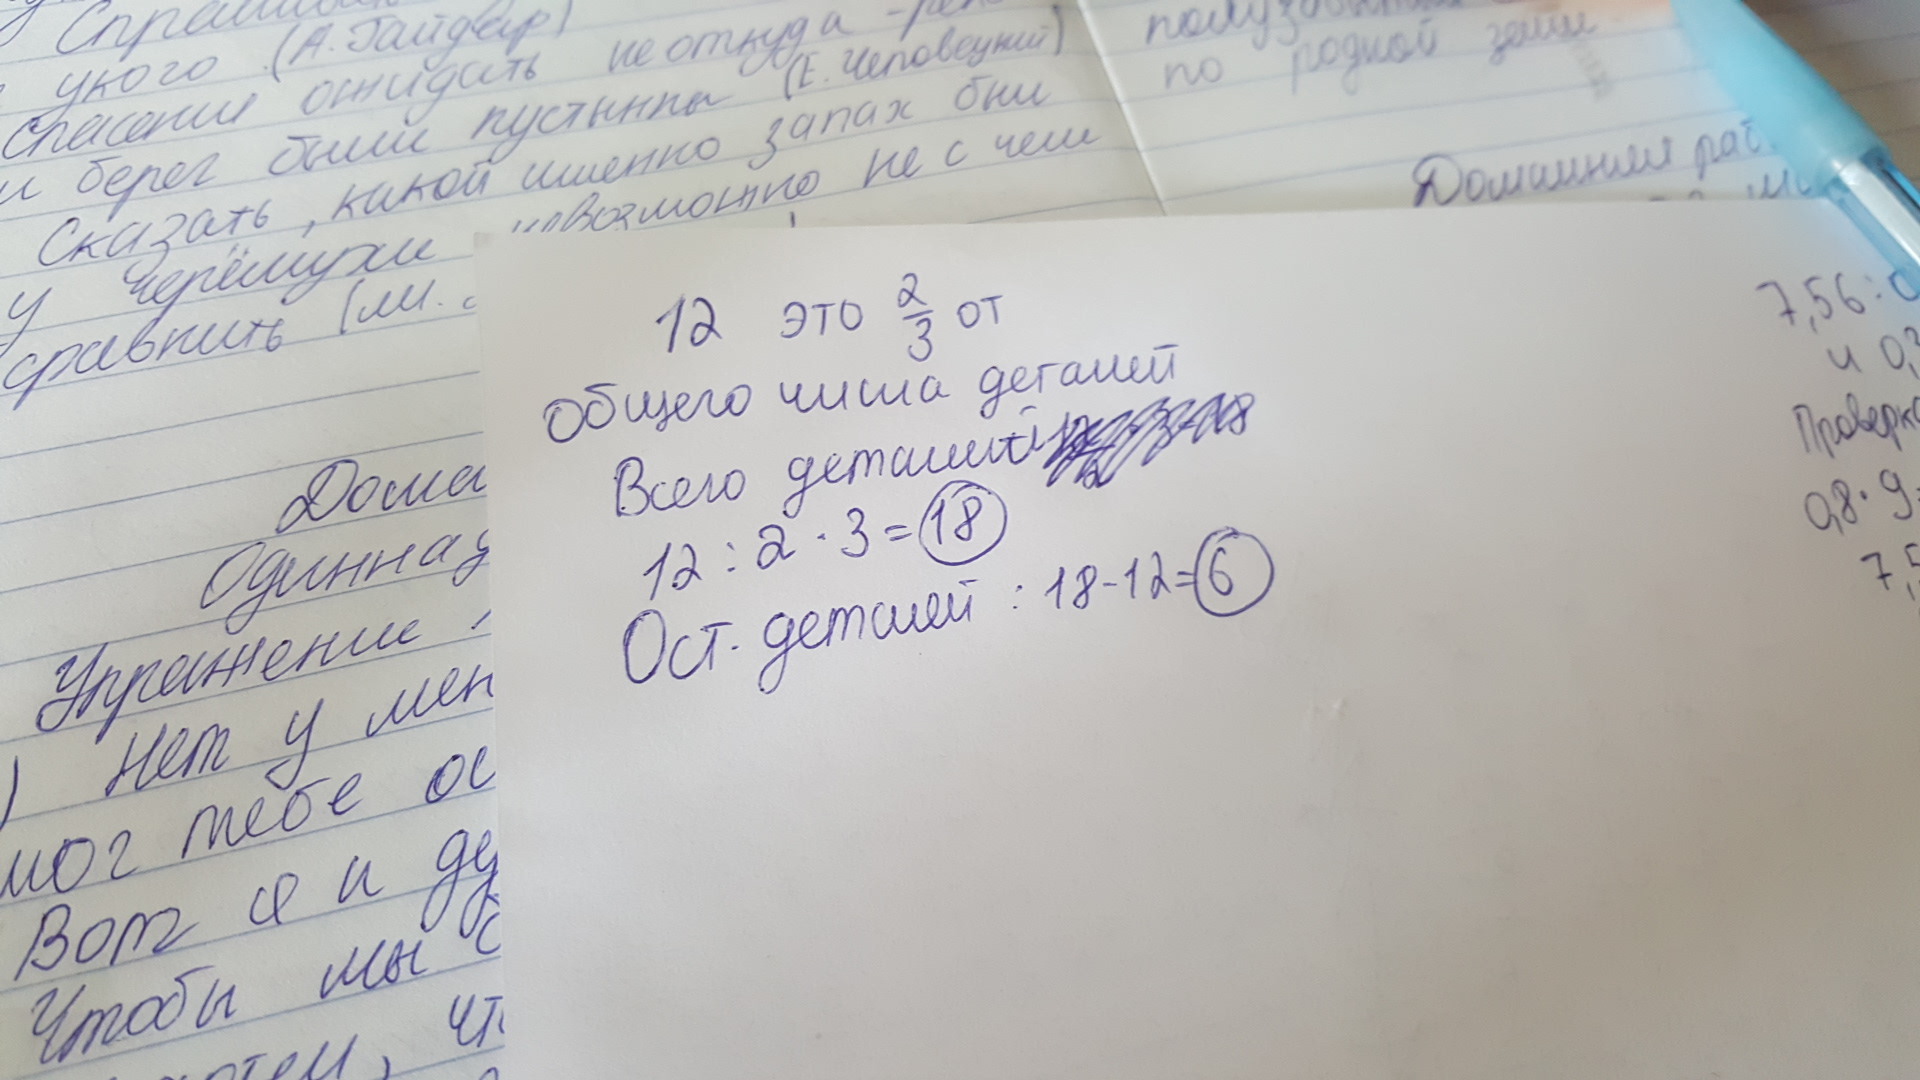 Спрашивать
у кого (А. Гайдар)
Спасения ожидать не откуда - ре
и берег были пустынны (Е. Чеповецкий)
Сказать, какой именно запах был
у черёмухи невозможно не с чем
сравнить (М.
Дома
Одиннад
Упражнение
Нет у мен
мог тебе ос
Вот я и ду
Чтобы мы с
по родной земле
Домашняя раб
12 это 2/3 от
общего числа деталей
Всего деталей
12 : 2 · 3 = 18
Ост. деталей : 18-12=6
7,56:0
и 0,
Проверка
0,8·9
7,5